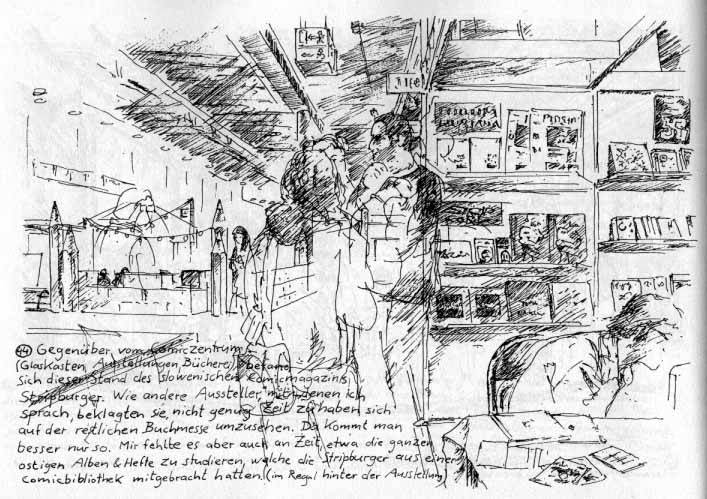 (44) Gegenüber vom Comiczentrum
(Glaskästen Ausstellungen, Bücherei) befand
sich dieser Stand des slowenischen Comicmagazins
Stripburger. Wie andere Aussteller, mit denen ich
sprach, beklagten sie, nicht genug Zeit zu haben sich
auf der restlichen Buchmesse umzusehen. Da kommt man
besser nur so. Mir fehlte es aber auch an Zeit, etwa die ganzen
ostigen Alben & Hefte zu studieren, welche die Stripburger aus einer
Comicbibliothek mitgebracht hatten. (im Regal hinter der Ausstellung)